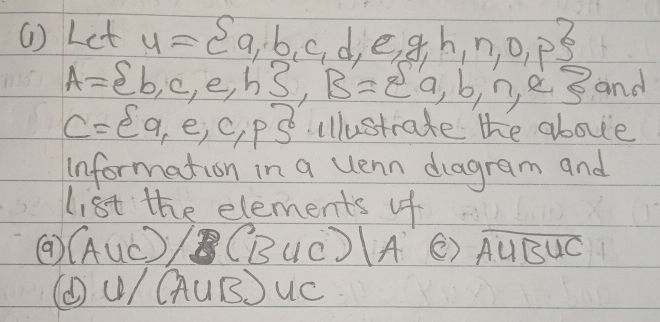 (1) Let u = {a, b, c, d, e, g, h, n, o, p}
A = {b, c, e, h}, B = {a, b, n, e} and
C = {a, e, c, p} illustrate the above
information in a venn diagram and
list the elements of
(a) (AUC) / B (BUC) \ A (c) A̅U̅B̅U̅C̅
(d) U / (AUB) UC